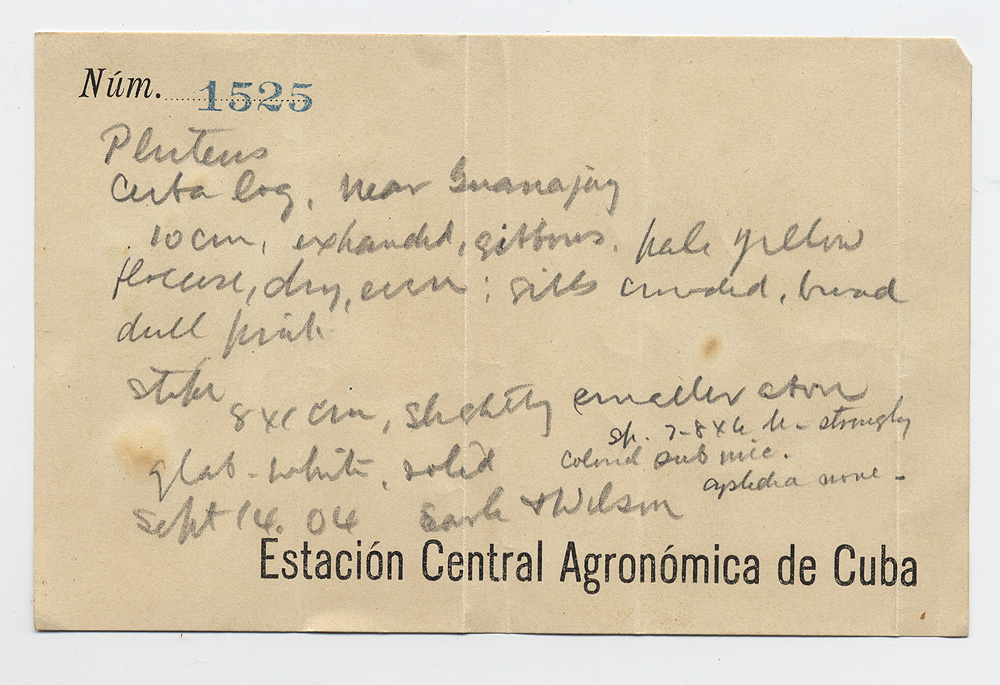 Núm. 1525
Pluteus
Ceiba log, near Guanajay
10 cm, expanded, gibbous, pale yellow
floccose, dry, even; gills crowded, broad
dull pink
stipe 8 x 1 cm, slightly smaller above
glab - white, solid
sp. 7-8 x 6 u - strongly
colored sub mic.
cystidia none -
Sept 14. 04 Earle & Wilson
Estación Central Agronómica de Cuba